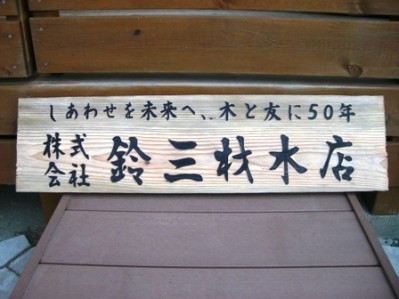 しあわせを未来へ、、木と友に50年
株式会社 鈴三材木店